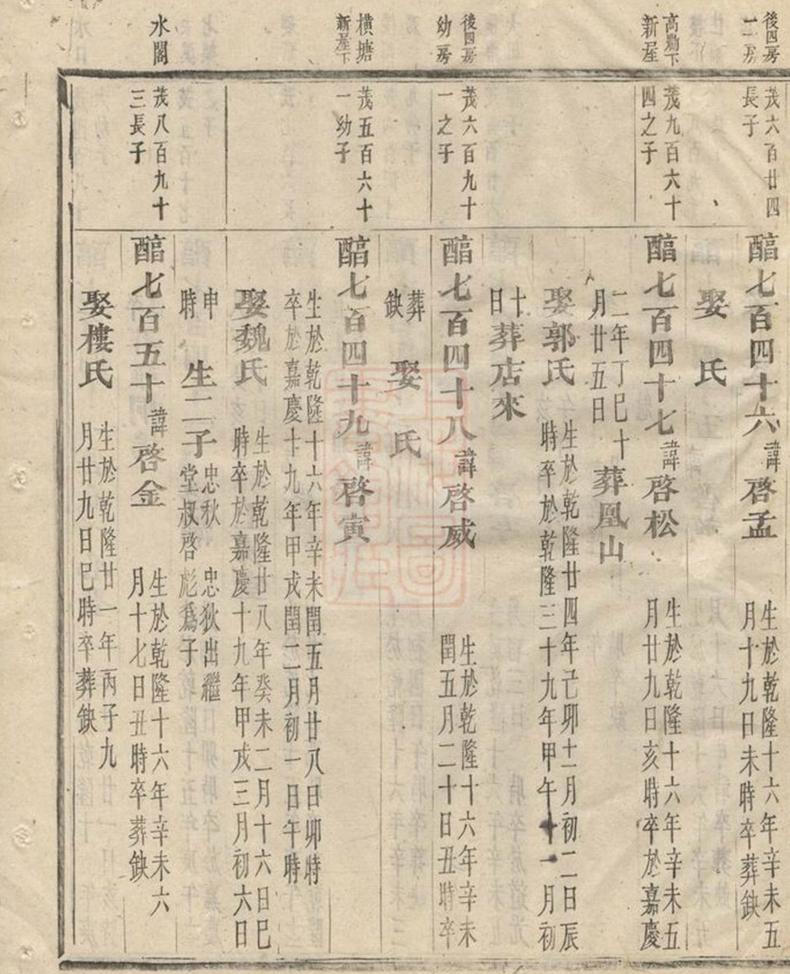 後四房
一二房
茂六百廿四
長子
醕七百四十六諱啓孟
生於乾隆十六年辛未五
月十九日未時卒葬缺
娶 氏
高勘下
新屋
茂九百六十
四之子
醕七百四十七諱啓松
生於乾隆十六年辛未五
月廿九日亥時卒於嘉慶
二年丁巳十
月廿五日
葬凰山
娶郭氏
生於乾隆廿四年己卯十一月初二日辰
時卒於乾隆三十九年甲午十一月初
十
日
葬店來
後四房
幼房
茂六百九十
一之子
醕七百四十八諱啓威
生於乾隆十六年辛未
閏五月二十日丑時卒
葬
缺
娶 氏
橫塘
新屋下
茂五百六十
一幼子
醕七百四十九諱啓寅
生於乾隆十六年辛未閏五月廿八日卯時
卒於嘉慶十九年甲戌閏二月初一日午時
娶魏氏
生於乾隆廿八年癸未二月十六日巳
時卒於嘉慶十九年甲戌三月初六日
申
時
生二子
忠秋 忠狄出繼
堂叔啓彪為子
水閣
茂八百九十
三長子
醕七百五十諱啓金
生於乾隆十六年辛未六
月十七日丑時卒葬缺
娶樓氏
生於乾隆廿一年丙子九
月廿九日巳時卒葬缺